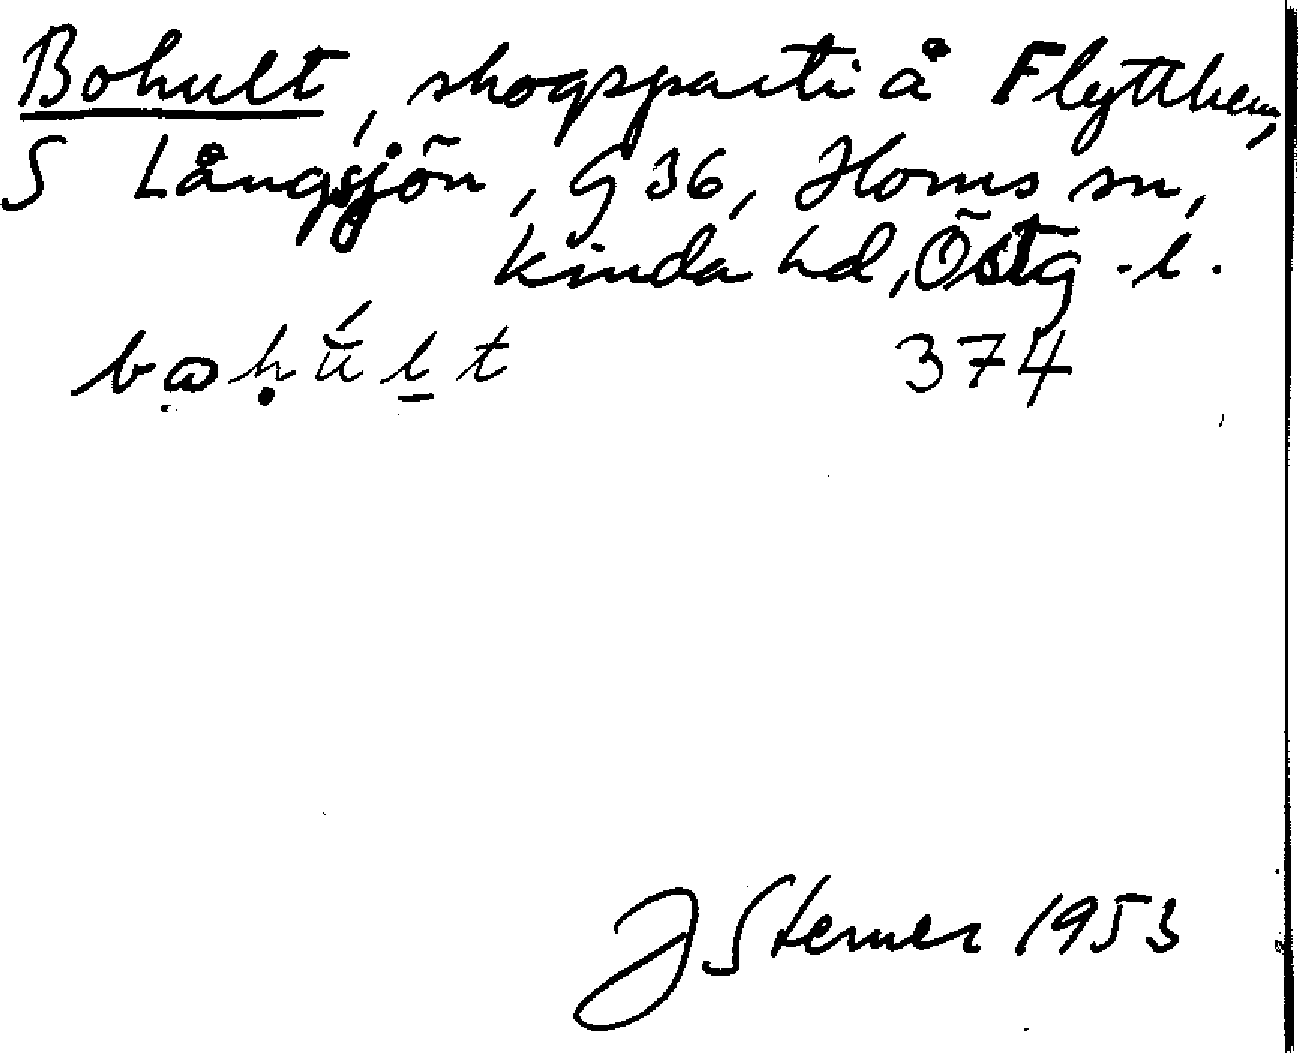 Bohult, skogsparti å Flytthem,
S Långsjön, G 36, Horns sn,
Kinda hd, Östg.-l.
bo̤ḥúḻt 374
J Sterner 1953